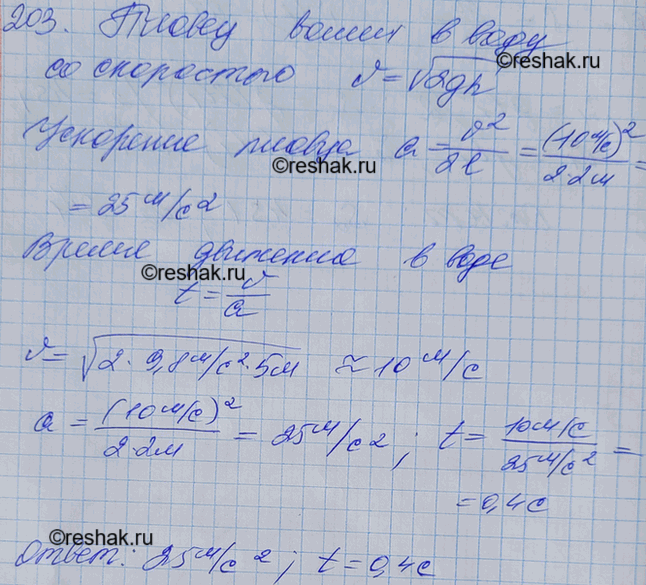 203. Пловец вошел в воду
reshak.ru
со скоростью v = √2gh
Ускорение пловца a = v²/2l = (10 м/с)²/2·2м =
reshak.ru
= 25 м/с²
Время движения в воде
reshak.ru
t = v/a
v = √2·9,8 м/с²·5м ≈ 10 м/с
a = (10 м/с)²/2·2м = 25 м/с²; t = 10 м/с/25 м/с² =
= 0,4 с
reshak.ru
Ответ: 25 м/с²; t = 0,4 с